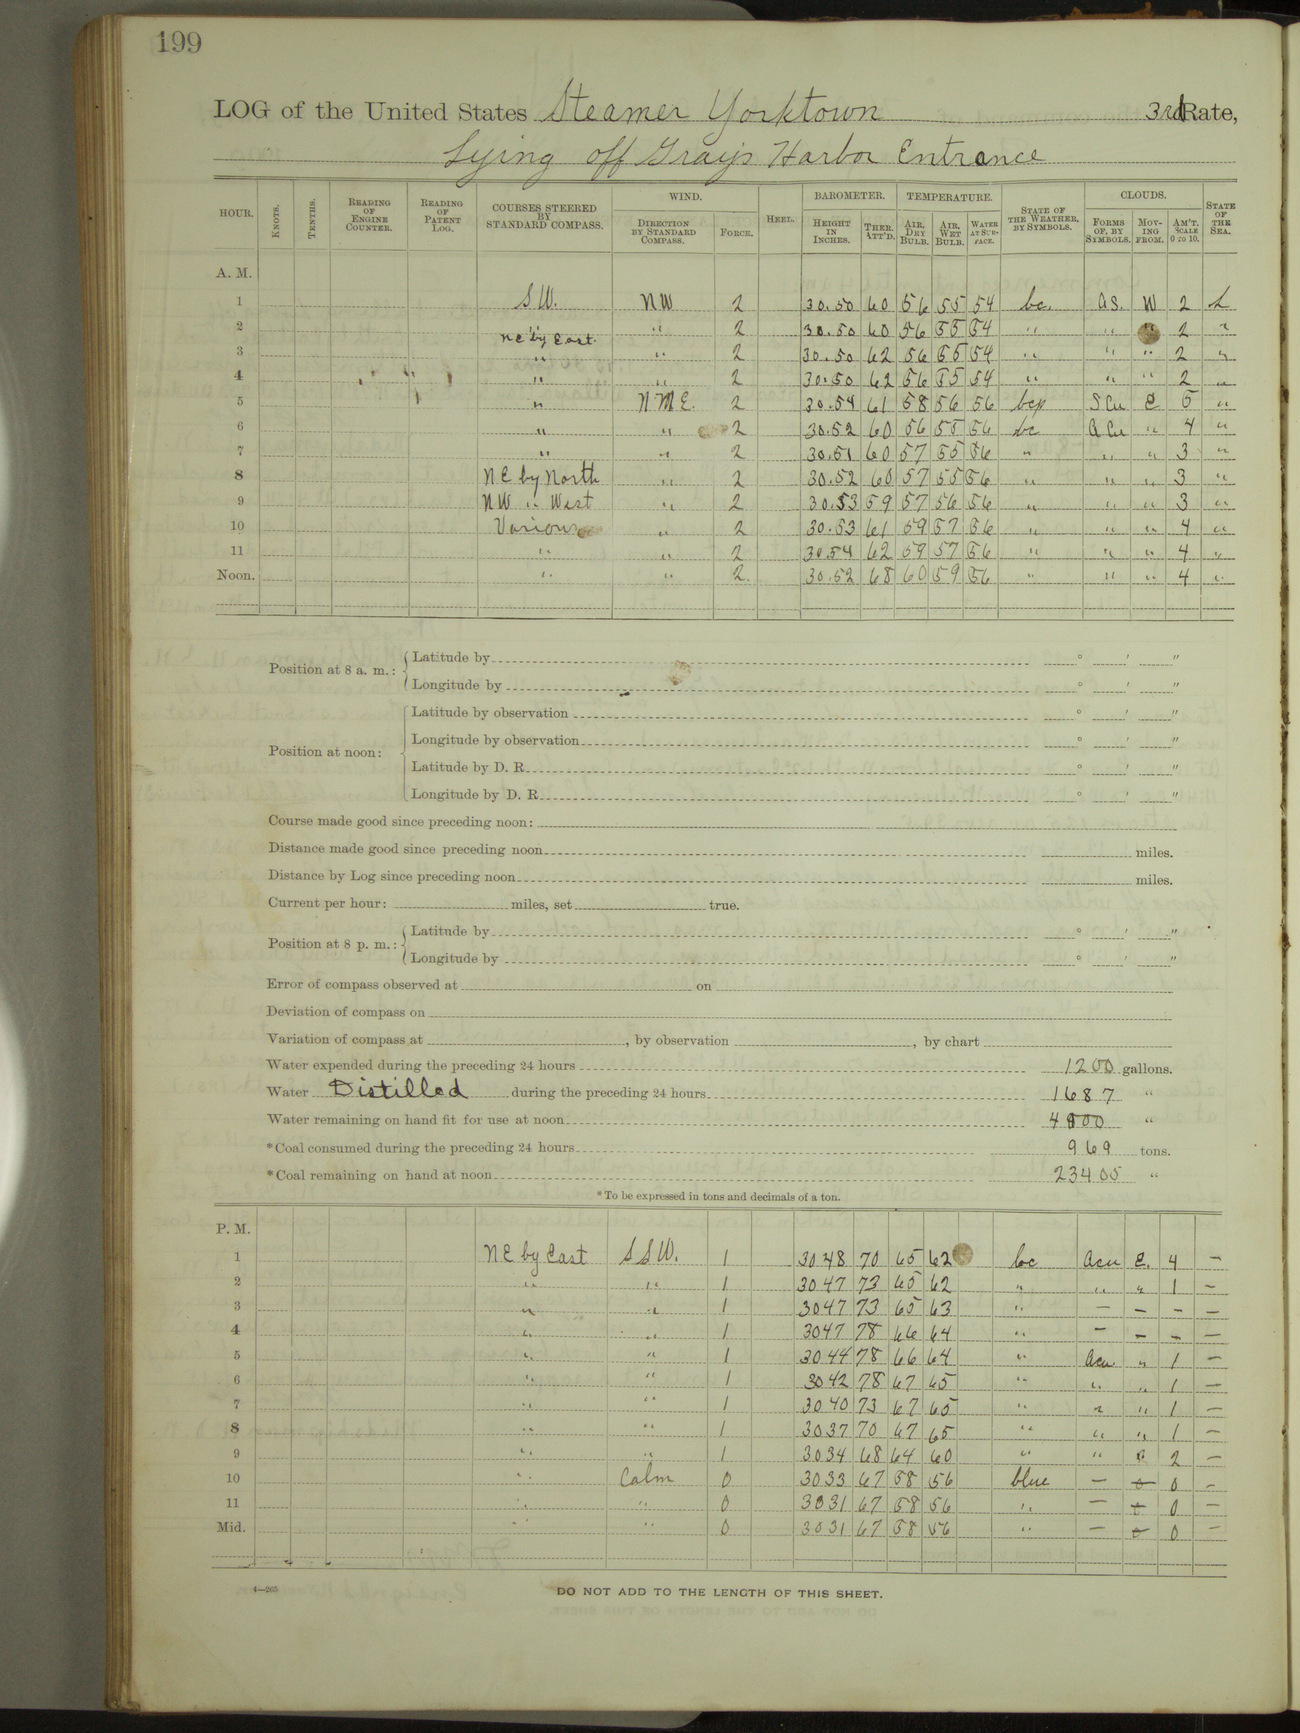 199
LOG of the United States Steamer Yorktown 3rd Rate,
Lying off Grays Harbor Entrance
HOUR. KNOTS. TENTHS. READING OF ENGINE COUNTER. READING OF PATENT LOG. COURSES STEERED BY STANDARD COMPASS. WIND. DIRECTION BY STANDARD COMPASS. FORCE. HEEL. BAROMETER. HEIGHT IN INCHES. THER. ATT'D. TEMPERATURE. AIR, DRY BULB. AIR, WET BULB. WATER AT SUR-FACE. STATE OF THE WEATHER, BY SYMBOLS. CLOUDS. FORMS OF, BY SYMBOLS. MOV-ING FROM. AM'T. SCALE 0 TO 10. STATE OF THE SEA.
A. M.
1 S.W. NW 2 30.50 60 56 55 54 bc. a.s. W 2 L
2 " " 2 30.50 60 56 55 54 " " " 2 "
NE by East.
3 " " 2 30.50 62 56 55 54 " " " 2 "
4 " " 2 30.50 62 56 55 54 " " " 2 "
5 " NNE. 2 30.54 61 58 56 56 bcp S Cu E 5 "
6 " " 2 30.52 60 56 55 56 bc a Cu " 4 "
7 " " 2 30.51 60 57 55 56 " " " 3 "
8 NE by North " 2 30.52 60 57 55 56 " " " 3 "
9 NW " West " 2 30.53 59 57 56 56 " " " 3 "
10 Various " 2 30.53 61 59 57 56 " " " 4 "
11 " " 2 30.54 62 59 57 56 " " " 4 "
Noon. " " 2. 30.52 68 60 59 56 " " " 4 "
Position at 8 a. m.: Latitude by ° ' "
Longitude by ° ' "
Position at noon: Latitude by observation ° ' "
Longitude by observation ° ' "
Latitude by D. R. ° ' "
Longitude by D. R. ° ' "
Course made good since preceding noon:
Distance made good since preceding noon miles.
Distance by Log since preceding noon miles.
Current per hour: miles, set true.
Position at 8 p. m.: Latitude by ° ' "
Longitude by ° ' "
Error of compass observed at on
Deviation of compass on
Variation of compass at , by observation , by chart
Water expended during the preceding 24 hours 1200 gallons.
Water Distilled during the preceding 24 hours 1687 "
Water remaining on hand fit for use at noon "
*Coal consumed during the preceding 24 hours 969 tons.
*Coal remaining on hand at noon 23405 "
*To be expressed in tons and decimals of a ton.
P. M.
1 NE by East SSW. 1 3048 70 65 62 bc acu E. 4 —
2 " " 1 3047 73 65 62 " " " 1 —
3 " " 1 3047 73 65 63 " — — — —
4 " " 1 3047 78 66 64 " — — — —
5 " " 1 3044 78 66 64 " acu " 1 —
6 " " 1 3042 78 67 65 " " " 1 —
7 " " 1 3040 73 67 65 " " " 1 —
8 " " 1 3037 70 67 65 " " " 1 —
9 " " 1 3034 68 64 60 " " " 2 —
10 " Calm 0 3033 67 58 56 blue — 0 0 —
11 " " 0 3031 67 58 56 " — 0 —
Mid. " " 0 3031 67 58 56 " — 0 0 —
4—265
DO NOT ADD TO THE LENGTH OF THIS SHEET.